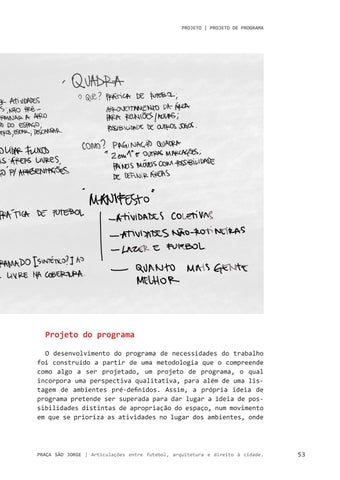 PROJETO | PROJETO DE PROGRAMA
· QUADRA
O QUE? PRÁTICA DE FUTEBOL;
APROVEITAMENTO DA ÁREA
PARA REUNIÕES/AULAS;
POSSIBILIDADE DE OUTROS JOGOS.
ATIVIDADES
NÃO PRÉ-
DO ESPAÇO,
ESTAR, DESCANSAR.
COMO? PAGINAÇÃO QUADRA
"2 em 1" E OUTRAS MARCAÇÕES,
PAINEIS MÓVEIS COM POSSIBILIDADE
DE DEFINIR ÁREAS
ÁREAS LIVRES,
P/ APRESENTAÇÕES.
"MANIFESTO"
PRÁTICA DE FUTEBOL
— ATIVIDADES COLETIVAS
— ATIVIDADES NÃO-ROTINEIRAS
— LAZER E FUTEBOL
— QUANTO MAIS GENTE
MELHOR
GRAMADO [SINTÉTICO?] AO
LIVRE NA COBERTURA.
Projeto do programa
O desenvolvimento do programa de necessidades do trabalho
foi construído a partir de uma metodologia que o compreende
como algo a ser projetado, um projeto de programa, o qual
incorpora uma perspectiva qualitativa, para além de uma lis-
tagem de ambientes pré-definidos. Assim, a própria ideia de
programa pretende ser superada para dar lugar a ideia de pos-
sibilidades distintas de apropriação do espaço, num movimento
em que se prioriza as atividades no lugar dos ambientes, onde
PRAÇA SÃO JORGE | Articulações entre futebol, arquitetura e direito à cidade.
53